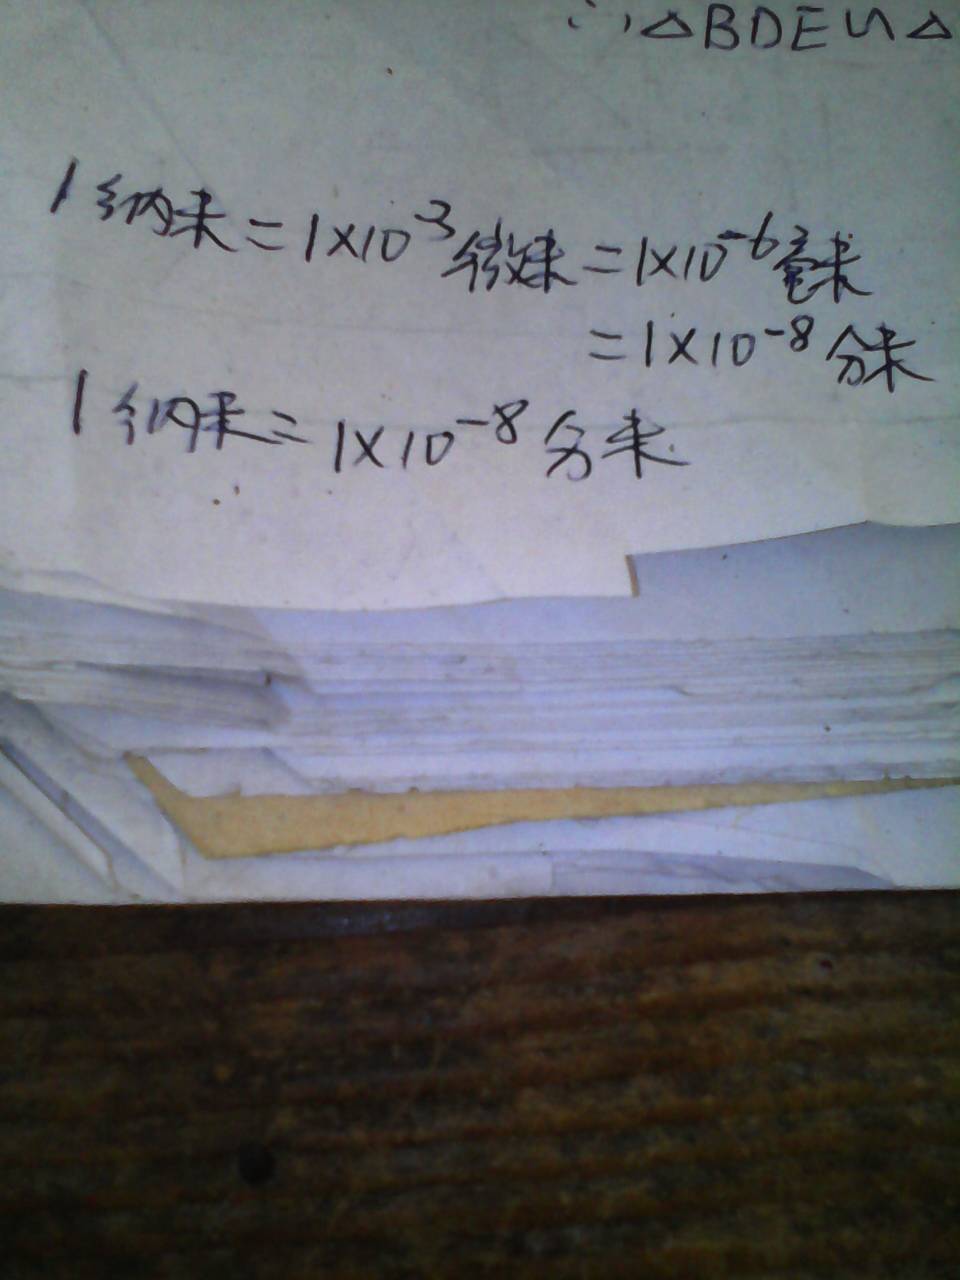 ∴△BDE∽△
1纳米=1×10⁻³微米=1×10⁻⁶毫米
=1×10⁻⁸分米
1纳米=1×10⁻⁸分米.